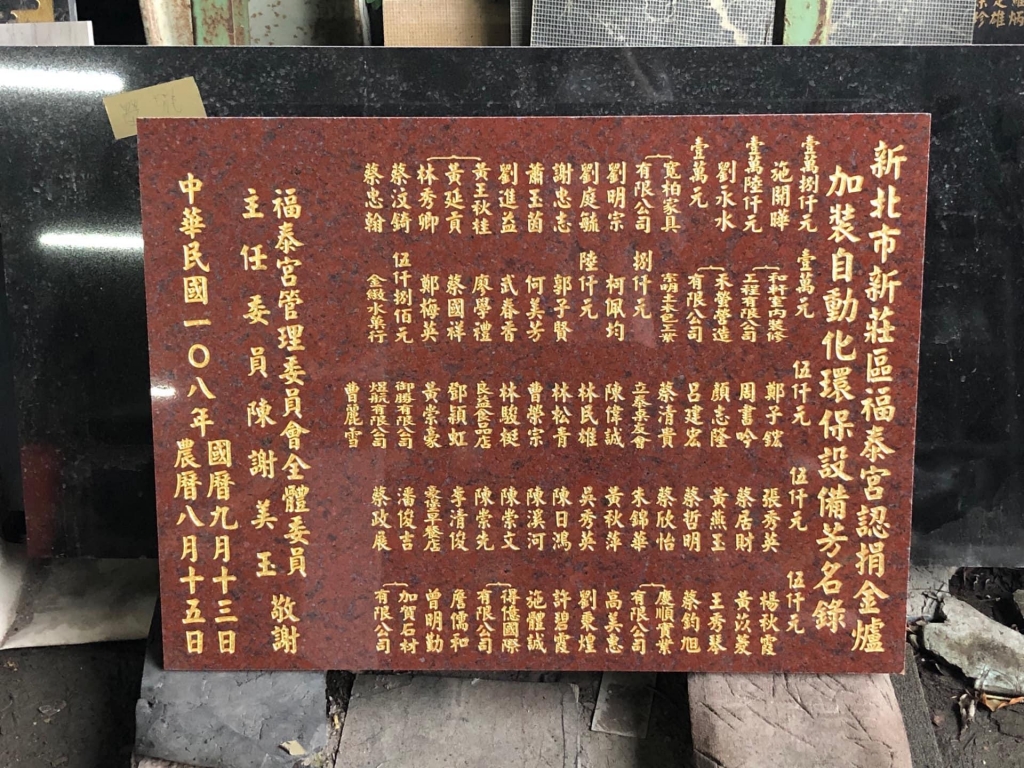 新北市新莊區福泰宮認捐金爐
加裝自動化環保設備芳名錄
壹萬捌仟元
施開曄
壹萬陸仟元
劉永水
壹萬元
寬柏家具
有限公司
劉明宗
劉庭毓
謝忠志
蕭玉茵
劉進益
黃王秋桂
黃延貢
林秀卿
蔡汶錡
蔡忠翰
壹萬元
和軒室內裝修
工程有限公司
禾營營造
有限公司
捌仟元
柯佩均
陸仟元
郭子賢
何美芳
武春香
廖學禮
蔡國祥
鄭梅英
伍仟捌佰元
金緻水菓行
伍仟元
鄭子鋐
周書吟
顏志隆
呂建宏
蔡清貴
立泰桌友會
陳偉誠
林民雄
林松青
曹榮宗
林駿梃
良益食品店
鄧穎虹
黃崇豪
御勝有限公司
煜航有限公司
曹麗雪
伍仟元
張秀英
蔡居財
黃燕玉
蔡哲明
蔡欣怡
朱錦華
黃秋萍
吳秀英
陳日鴻
陳溪河
陳崇文
陳崇先
李清俊
豪堡早餐店
潘俊吉
蔡政展
伍仟元
楊秋霞
黃苡菱
王秀琴
蔡鈞旭
慶順實業
有限公司
高美惠
劉秉煌
許碧霞
施體誠
得億國際
有限公司
詹儒和
曾明勤
加賀石材
有限公司
福泰宮管理委員會全體委員
主任委員陳謝美玉
敬謝
中華民國一〇八年
國曆九月十三日
農曆八月十五日